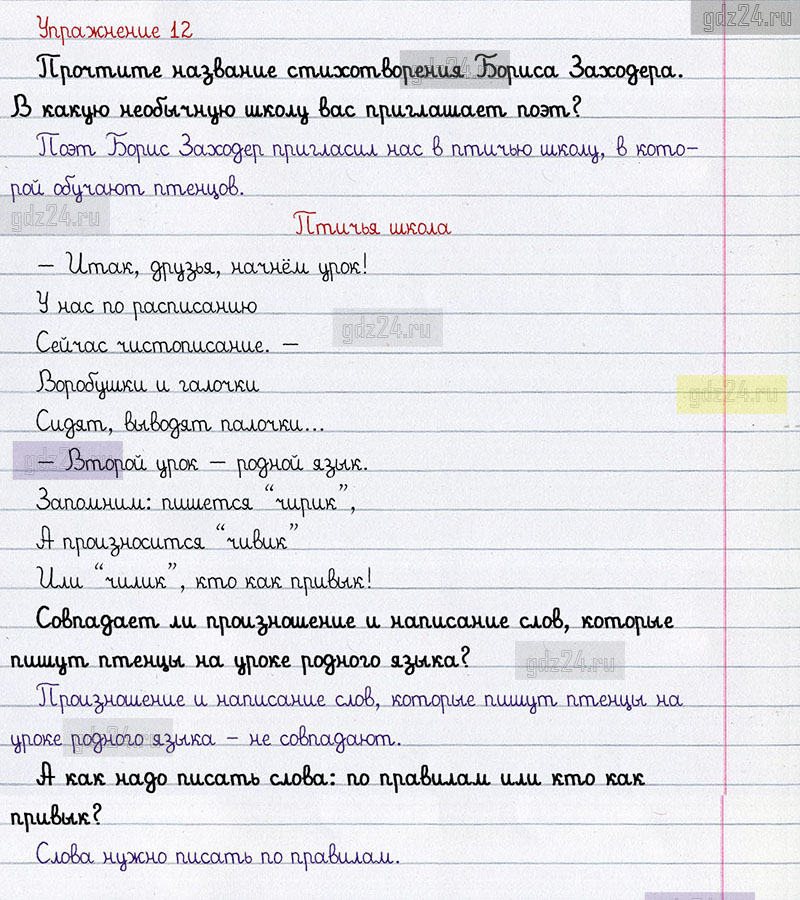 gdz24.ru
Упражнение 12
Прочтите название стихотворения Бориса Заходера.
gdz24.ru
В какую необычную школу вас приглашает поэт?
Поэт Борис Заходер пригласил нас в птичью школу, в кото-
рой обучают птенцов.
gdz24.ru
Птичья школа
— Итак, друзья, начнём урок!
У нас по расписанию
gdz24.ru
Сейчас чистописание. —
Воробушки и галочки
gdz24.ru
Сидят, выводят палочки...
— Второй урок — родной язык.
gdz24.ru
Запомним: пишется “чирик”,
А произносится “чивик”
Или “чилик”, кто как привык!
Совпадает ли произношение и написание слов, которые
пишут птенцы на уроке родного языка?
gdz24.ru
Произношение и написание слов, которые пишут птенцы на
уроке родного языка – не совпадают.
gdz24.ru
А как надо писать слова: по правилам или кто как
привык?
Слова нужно писать по правилам.